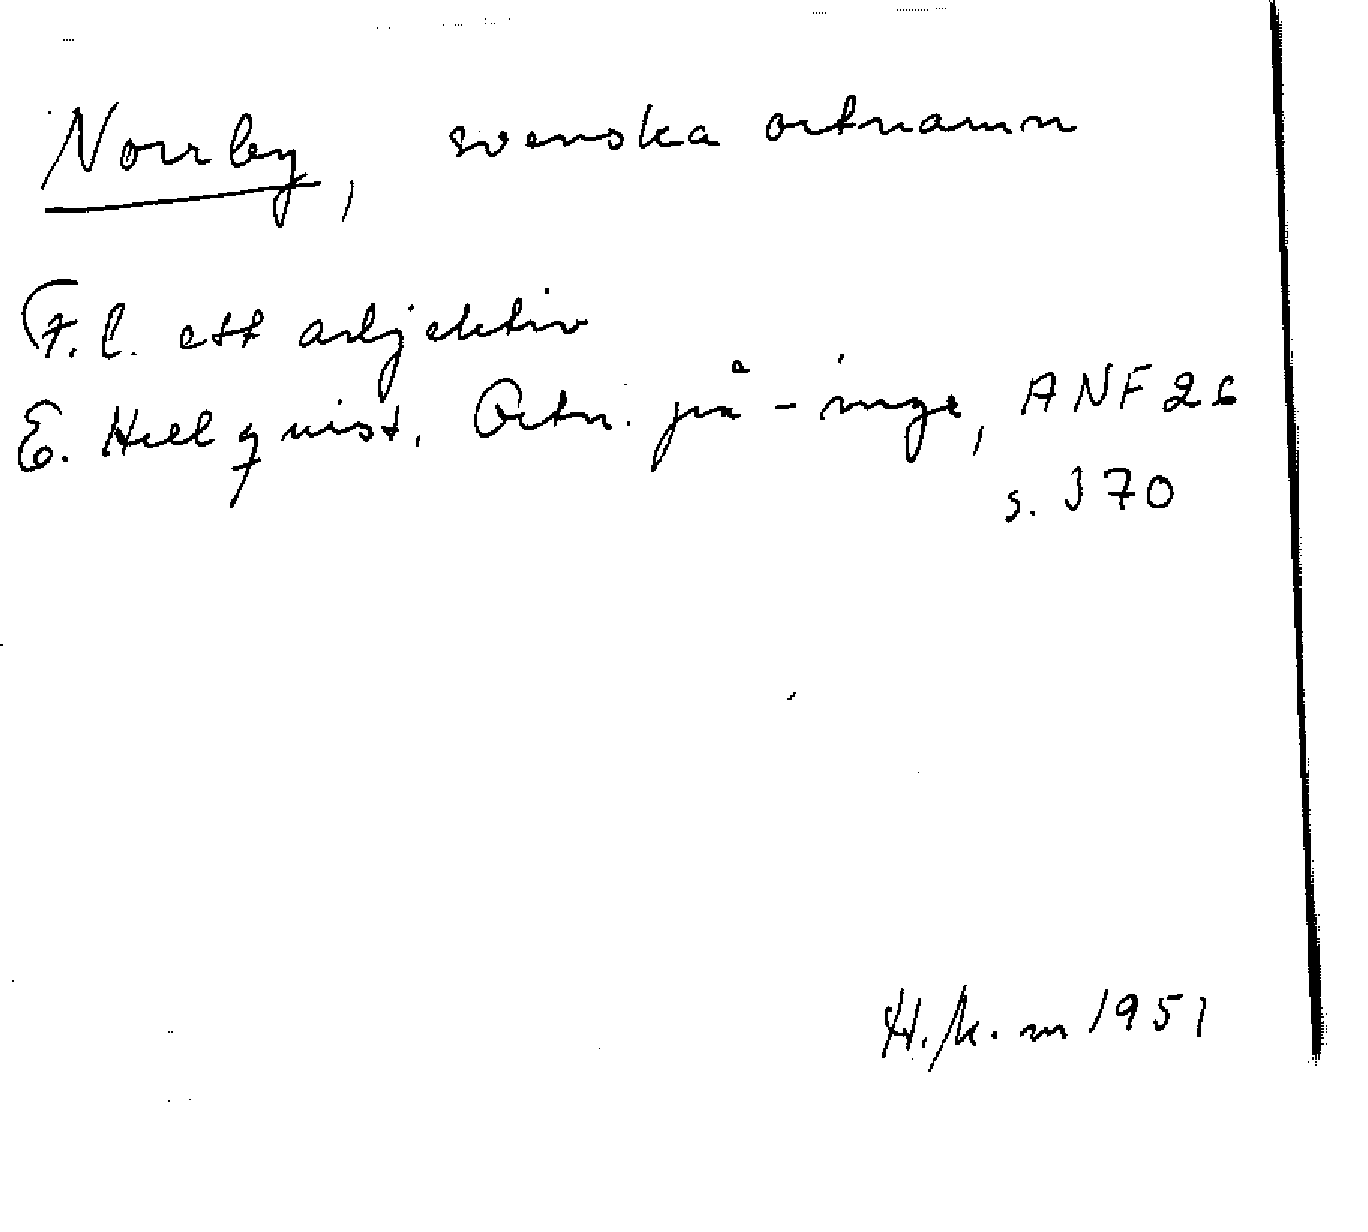 Norrby, svenska ortnamn
F.l. ett adjektiv
E. Hellquist, Ortn. på -inge, ANF 26
s. 370
H. K. m 1951